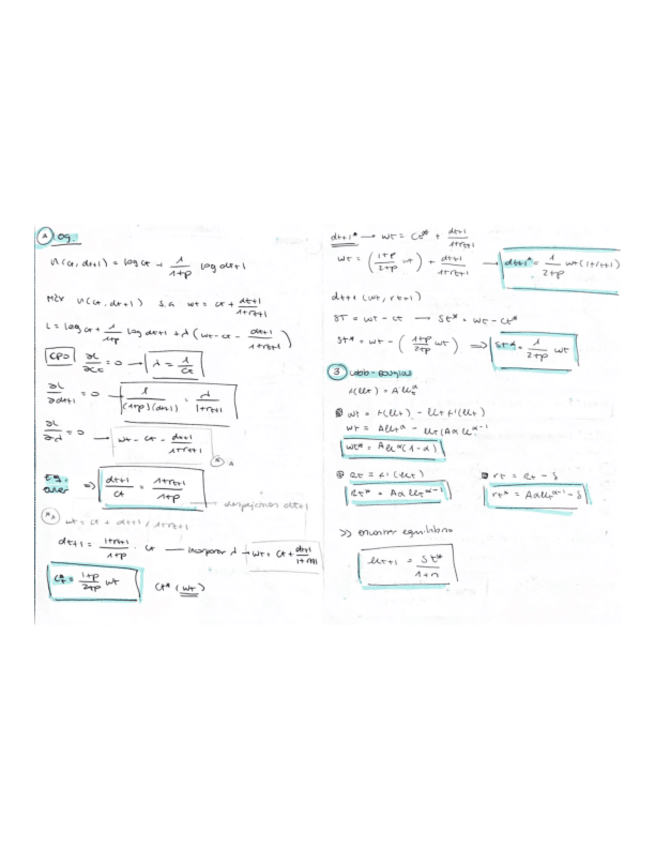 A og.
U(ct, dt+1) = log ct + 1/1+p log dt+1
Máx U(ct, dt+1) s.a wt = ct + dt+1/1+rt+1
L = log ct + 1/1+p log dt+1 + λ (wt - ct - dt+1/1+rt+1)
CPO ∂L/∂ct = 0 → λ = 1/ct
∂L/∂dt+1 = 0 → 1/(1+p)(dt+1) = λ/1+rt+1
∂L/∂λ = 0 → wt - ct - dt+1/1+rt+1
Eq. euler ⇒ dt+1/ct = 1+rt+1/1+p
despejamos dt+1
wt = ct + dt+1 / 1+rt+1
dt+1 = 1+rt+1/1+p · ct — incorporar λ → wt = ct + dt+1/1+rt+1
ct* = 1+p/2+p wt ct* (wt)
dt+1* → wt = ct* + dt+1/1+rt+1
wt = (1+p/2+p wt) + dt+1/1+rt+1 → dt+1* = 1/2+p wt (1+rt+1)
dt+1 (wt, rt+1)
ST = wt - ct → St* = wt - ct*
St* = wt - (1+p/2+p wt) ⇒ St* = 1/2+p wt
3 Cobb-Douglas
f(kt) = A kt^α
wt = f(kt) - kt f'(kt)
wt = Akt^α - kt (Aα kt^α-1
wt* = A kt^α (1-α)
Rt = f' (kt)
rt = Rt - δ
Rt* = Aα kt^α-1
rt* = Aα kt^α-1 - δ
>> encontrar equilibrio
kt+1 = St*/1+n